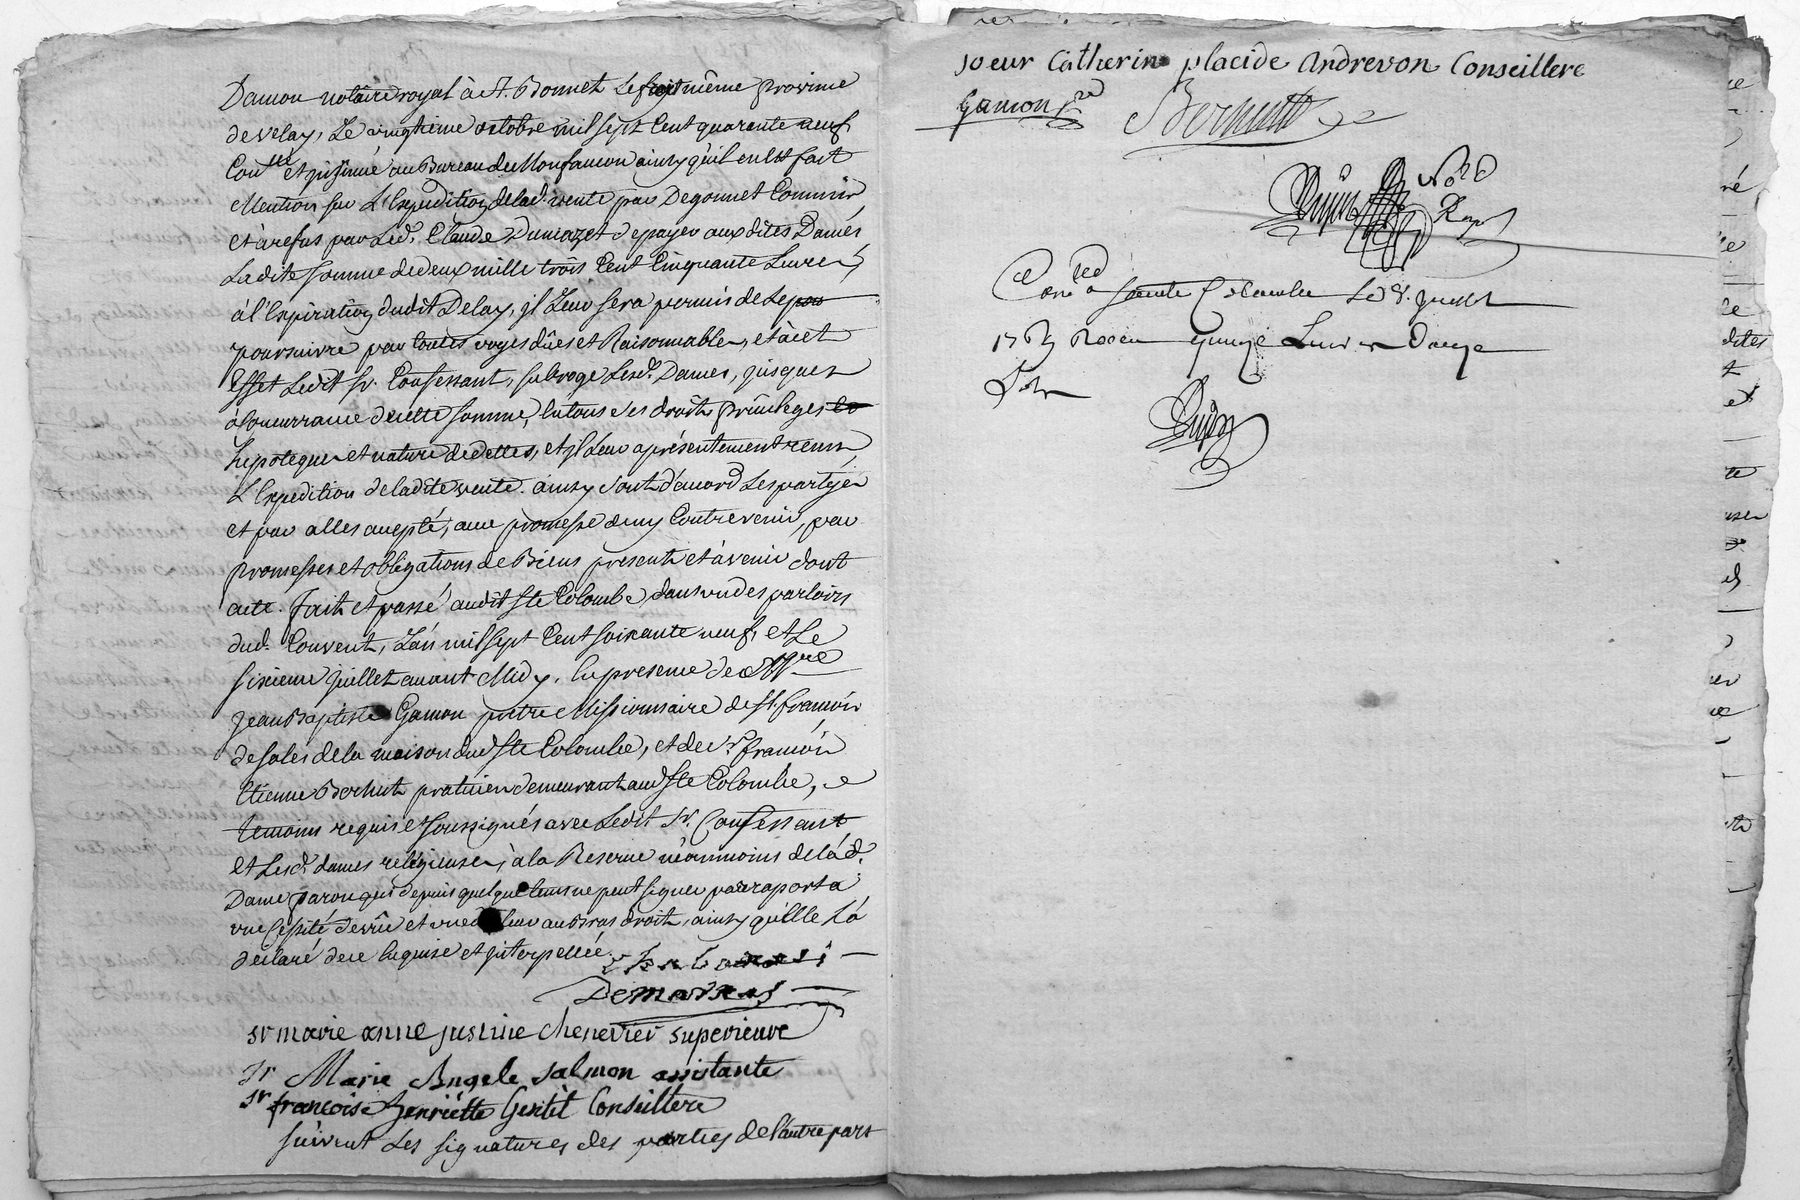 Damon notaire royal à St. Bonnet Le froit même province
de velay, Le vingtieme octobre mil sept Cent quarante neuf
Con.lle et insinué au Bureau de Monfaucon ainsy qu'il en Est fait
Mention sur L'Expedition de lad. vente par Degonnet Commis
et à refus par Led. Claude Dumazet de payer aux dites Dames
Ladite somme de deux mille trois Cent Cinquante Livres,
à l'Expiration dudit Delay, jl Leur sera permis de Le pou
poursuivre par toutes voyes dûes et Raisonnables, et à cet
Effet Ledit Sr. Confessant, subroge Lesd. Dames, jusques
à Concurrance de cette somme, En tous ses droits privileges Er
hipoteques et nature de dettes, et jl Leur a présentement remis
L'Expedition de ladite vente. ainsy sont d'acord Les partyes
et par alles accepté, avec promesse de n'y Contrevenir, par
promesses et obligations de Biens presents et à venir dont
acte. fait et passé audit Ste Colombe, dans un des parloirs
dud. Couvent, L'an mil sept Cent soixante neuf, et Le
sixieme juillet avant Midy, En presence de Mre
Jean Baptiste Gamon prêtre Missionnaire de St. francois
de sales de la maison dud Ste Colombe, et de Sr. francois
Etienne Bernut praticien demeurant aud Ste Colombe,
temoins requis et soussignés avec Ledit Sr. Confessant
et Lesd. dames religieuses, à la Reserve néanmoins de la d.
Dame qui depuis quelque tems ne peut signer par raport à
sa et au Bras droit, ainsy qu'Elle L'a
déclaré de ce Enquise et jnterpellée.
Demar
sr marie anne justine chenevier superieure
sr Marie Angele salmon assistante
sr francoise henriette Gentil Conseillere
suivent Les signatures des parties de l'autre part
soeur Catherine placide Andrevon Conseillere
Gamon
Bernut
Dujin
Con.é à sainte Colombe Le 8. juillet
1769 Receu quinze Livres Douze
sols
Dujin